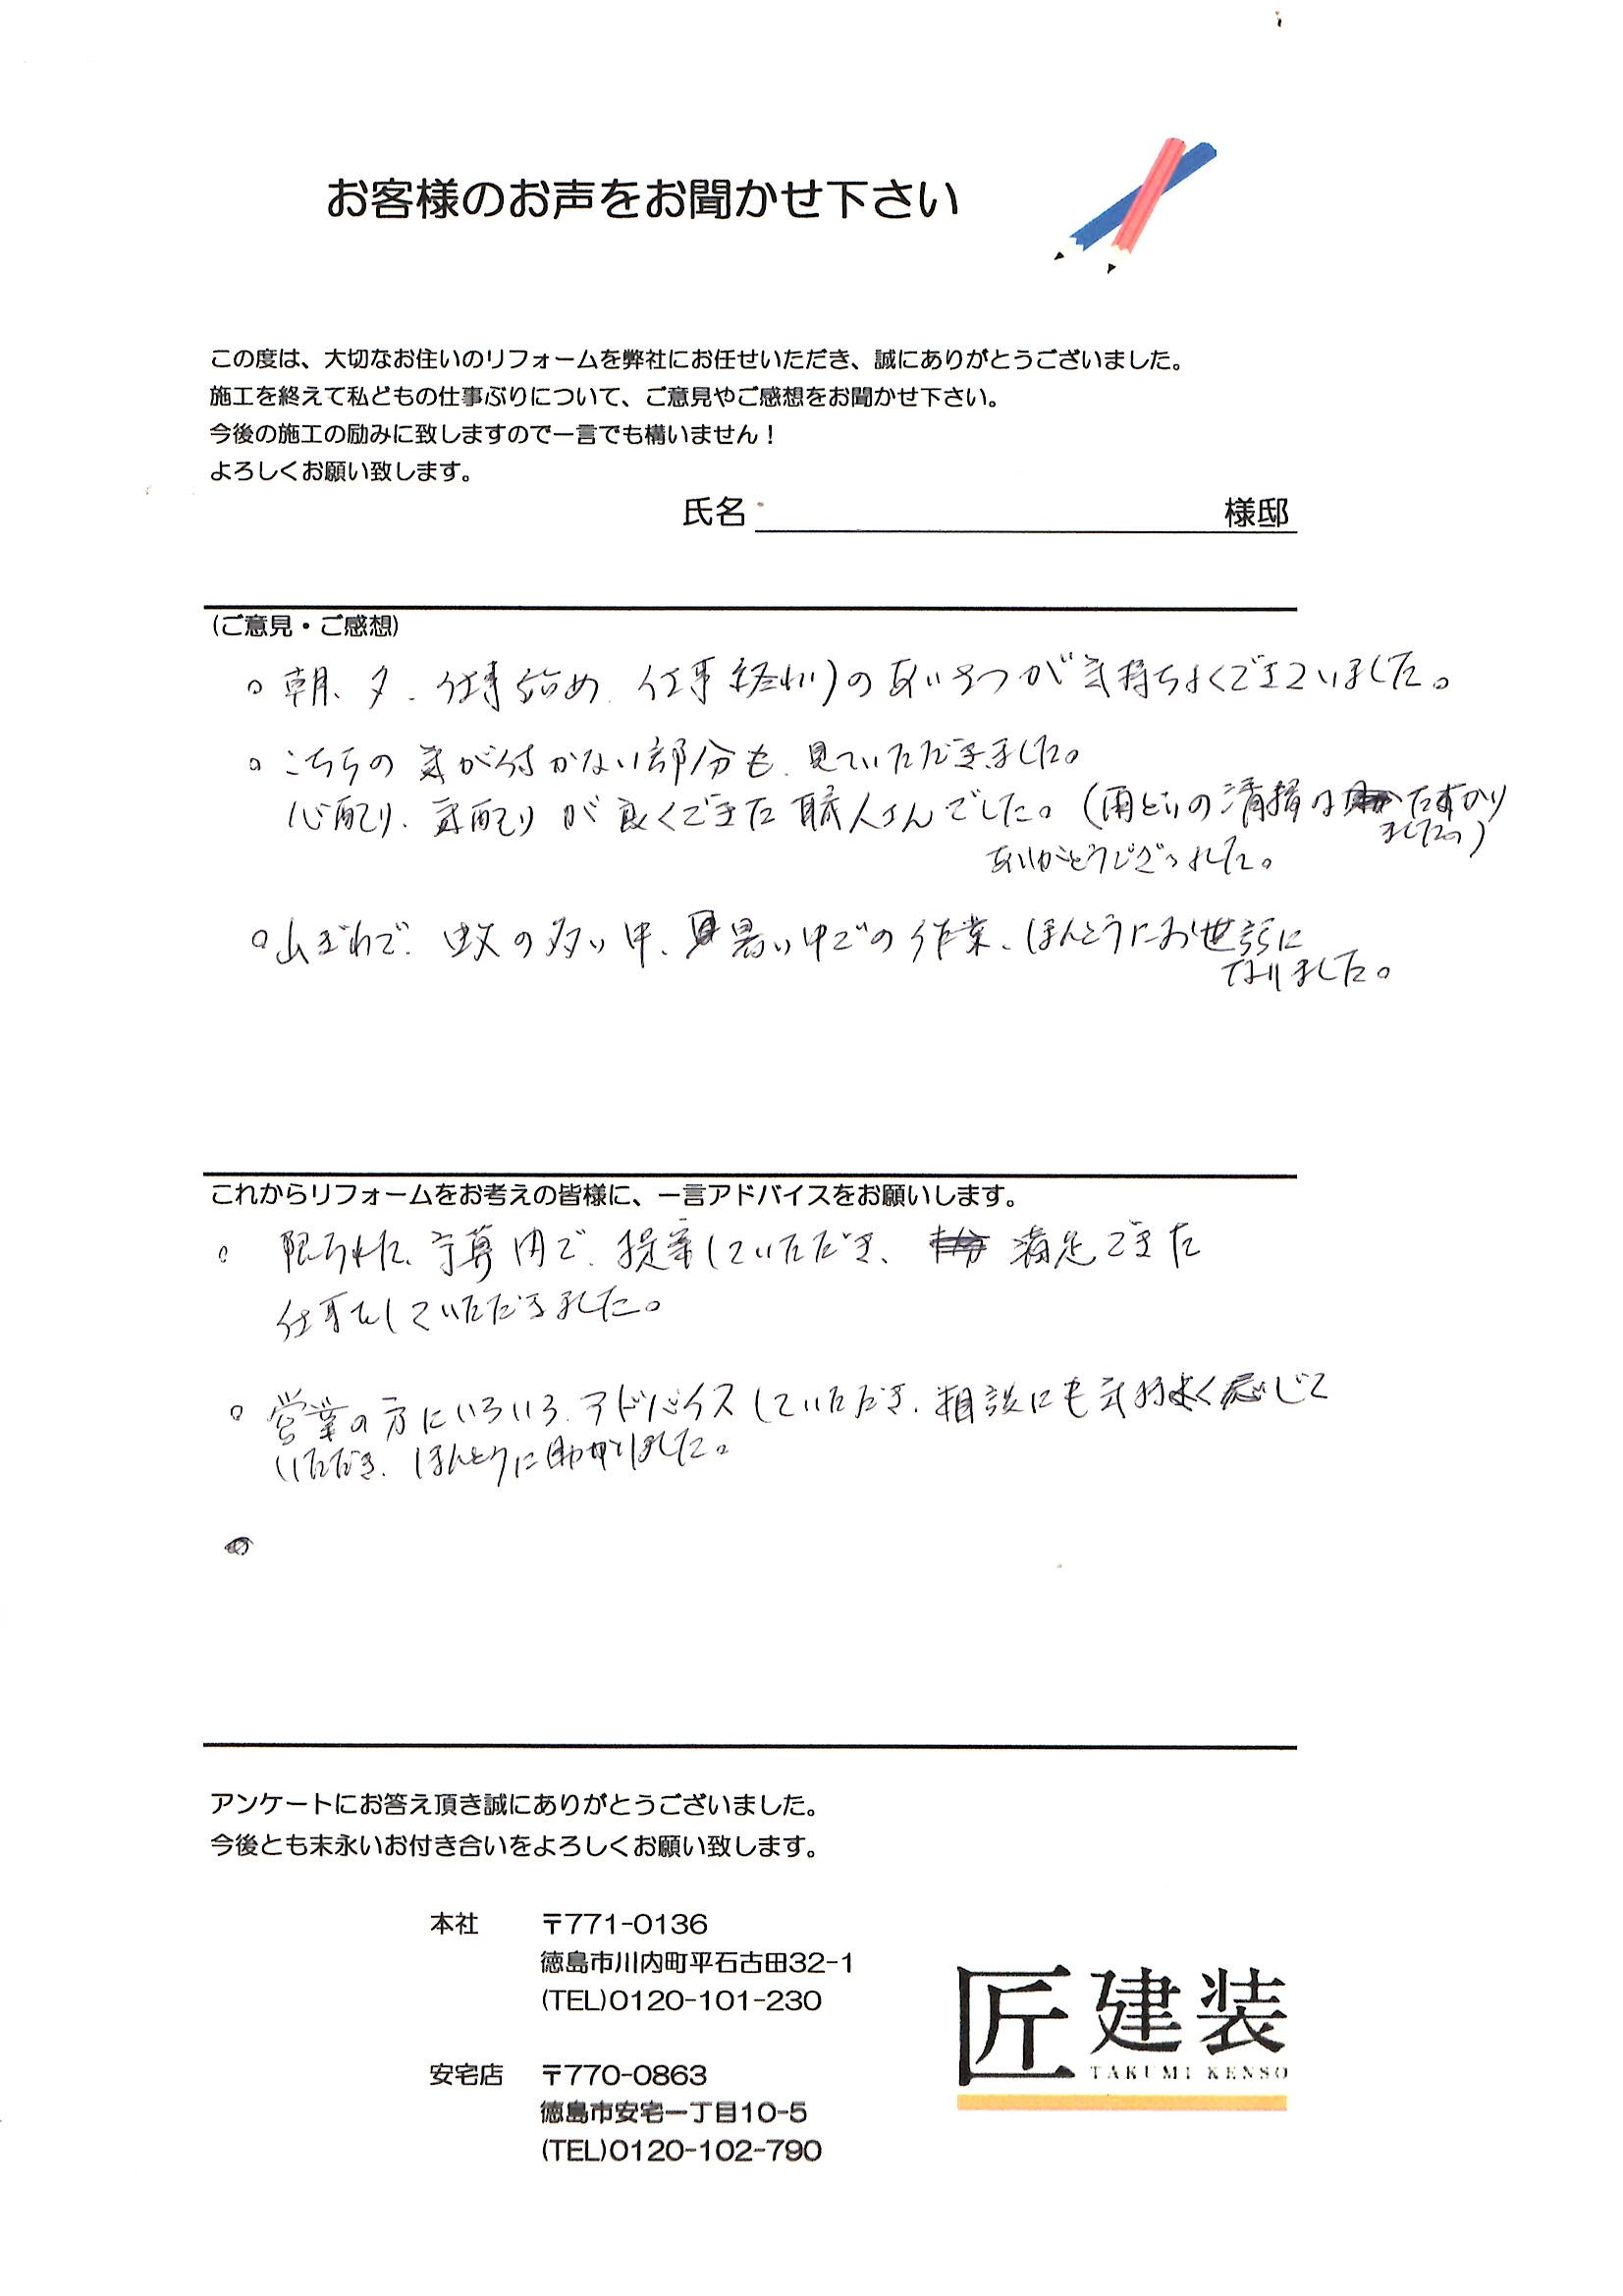 お客様のお声をお聞かせ下さい
この度は、大切なお住いのリフォームを弊社にお任せいただき、誠にありがとうございました。
施工を終えて私どもの仕事ぶりについて、ご意見やご感想をお聞かせ下さい。
今後の施工の励みに致しますので一言でも構いません！
よろしくお願い致します。
氏名 様邸
(ご意見・ご感想)
○朝、夕、仕事始め、仕事終わりのあいさつが気持ちよくございました。
○こちらの気が付かない部分も、見ていただきました。
心配り、気配りが良くできた職人さんでした。(雨といの清掃はたすかり
ました。)
ありがとうございました。
○山ぎわで、蚊の多い中、暑い中での作業、ほんとうにお世話に
なりました。
これからリフォームをお考えの皆様に、一言アドバイスをお願いします。
○限られた予算内で、提案していただき、満足できた
仕事をしていただきました。
○営業の方にいろいろアドバイスしていただき、相談にも気持よく応じて
いただき、ほんとうに助かりました。
アンケートにお答え頂き誠にありがとうございました。
今後とも末永いお付き合いをよろしくお願い致します。
本社 〒771-0136
徳島市川内町平石古田32-1
(TEL)0120-101-230
匠建装
TAKUMI KENSO
安宅店 〒770-0863
徳島市安宅一丁目10-5
(TEL)0120-102-790